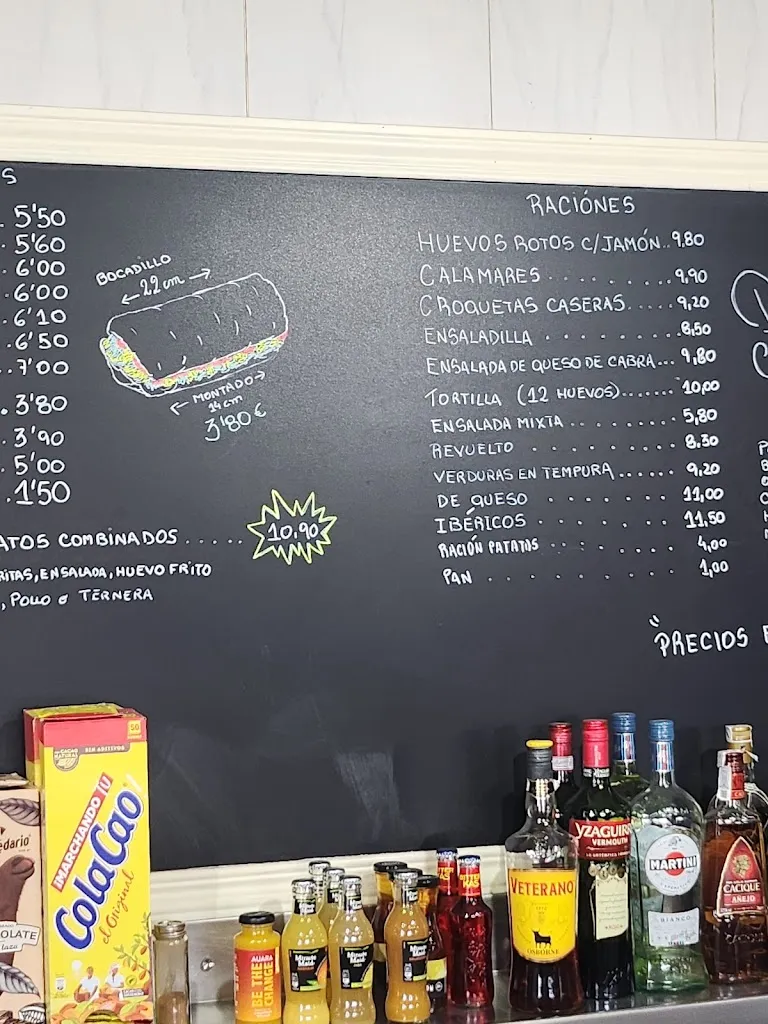 S
5'50
5'60
6'00
6'00
6'10
6'50
7'00
3'80
3'90
5'00
1'50
ATOS COMBINADOS ..... 10,90
RITAS, ENSALADA, HUEVO FRITO
, POLLO o TERNERA
BOCADILLO
22 cm
MONTADO
14 cm
3'80 €
RACIÓNES
HUEVOS ROTOS C/JAMÓN.. 9,80
CALAMARES . . . . . . . 9,90
CROQUETAS CASERAS..... 9,20
ENSALADILLA . . . . . . . 8,50
ENSALADA DE QUESO DE CABRA... 9,80
TORTILLA (12 HUEVOS)....... 10,00
ENSALADA MIXTA . . . . . . . 5,80
REVUELTO . . . . . . . . 8.30
VERDURAS EN TEMPURA...... 9,20
DE QUESO . . . . . . . 11,00
IBÉRICOS . . . . . . . 11,50
RACIÓN PATATAS . . . . . . 4,00
PAN . . . . . . . . 1,00
"PRECIOS E
50
CACAO NATURAL
SIN ADITIVOS
¡MARCHANDO TU
ColaCao!
el Original
edario
OLATE
AUARA
BE THE CHANGE
Minute Maid
Minute Maid
Minute Maid
BITTER KAS
VETERANO
OSBORNE
YZAGUIRRE
VERMOUTH
MARTINI
BIANCO
CACIQUE
AÑEJO